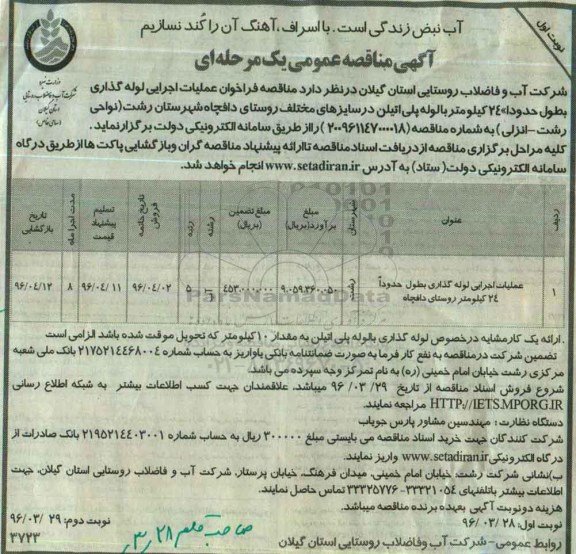 نوبت اول
آب نبض زندگی است. با اسراف، آهنگ آن را کُند نسازیم
آگهی مناقصه عمومی یک مرحله‌ای
وزارت نیرو
شرکت آب و فاضلاب روستایی
استان گیلان
(سهامی خاص)
شرکت آب و فاضلاب روستایی استان گیلان درنظر دارد مناقصه فراخوان عملیات اجرایی لوله گذاری
بطول حدوداً ۲۴ کیلومتر با لوله پلی اتیلن در سایزهای مختلف روستای دافچاه شهرستان رشت (نواحی
رشت - انزلی) به شماره مناقصه (۲۰۰۹۶۱۱۴۷۰۰۰۰۱۸) را از طریق سامانه الکترونیکی دولت برگزار نماید.
کلیه مراحل برگزاری مناقصه از دریافت اسناد مناقصه تا ارائه پیشنهاد مناقصه گران و بازگشایی پاکت ها از طریق درگاه
سامانه الکترونیکی دولت (ستاد) به آدرس www.setadiran.ir انجام خواهد شد.
ردیف عنوان شهرستان مبلغ برآورد (بریال) مبلغ تضمین (بریال) رشته رتبه تاریخ خاتمه فروش تسلیم پیشنهاد قیمت مدت اجرا ماه تاریخ بازگشایی
۱ عملیات اجرایی لوله گذاری بطول حدوداً ۲۴ کیلومتر روستای دافچاه رشت ۹،۰۵۹،۳۶۰،۰۵۰ ۴۵۳،۰۰۰،۰۰۰ آب ۵ ۹۶/۰۴/۰۲ ۹۶/۰۴/۱۱ ۸ ۹۶/۰۴/۱۲
ParsNamadData
.ارائه یک کار مشابه درخصوص لوله گذاری با لوله پلی اتیلن به مقدار ۱۰ کیلومتر که تحویل موقت شده باشد الزامی است
تضمین شرکت درمناقصه به نفع کارفرما به صورت ضمانتنامه بانکی یا واریز به حساب شماره ۲۱۷۵۲۱۴۴۶۸۰۰۴ بانک ملی شعبه
مرکزی رشت خیابان امام خمینی (ره) به نام تمرکز وجه سپرده می باشد.
شروع فروش اسناد مناقصه از تاریخ ۲۹/ ۰۳/ ۹۶ میباشد. علاقمندان جهت کسب اطلاعات بیشتر به شبکه اطلاع رسانی
HTTP://IETS.MPORG.IR مراجعه نمایند.
دستگاه نظارت : مهندسین مشاور پارس جویاب
شرکت کنندگان جهت خرید اسناد مناقصه می بایستی مبلغ ۳۰۰۰۰۰ ریال به حساب شماره ۲۱۹۵۲۱۴۴۰۳۰۰۱ بانک صادرات از
درگاه الکترونیکی www.setadiran.ir واریز نمایند.
ب)نشانی شرکت رشت خیابان امام خمینی، میدان فرهنگ، خیابان پرستار، شرکت آب و فاضلاب روستایی استان گیلان، جهت
اطلاعات بیشتر باتلفنهای ۳۳۳۲۱۰۵۴-۳۳۳۲۵۷۷۶ تماس حاصل نمایند.
هزینه دونوبت آگهی بعهده برنده مناقصه میباشد.
نوبت اول: ۲۸ /۰۳ /۹۶ نوبت دوم: ۲۹ /۰۳ /۹۶
روابط عمومی - شرکت آب وفاضلاب روستایی استان گیلان
۳۷۲۳
صاحب قلم ۳/۲۸